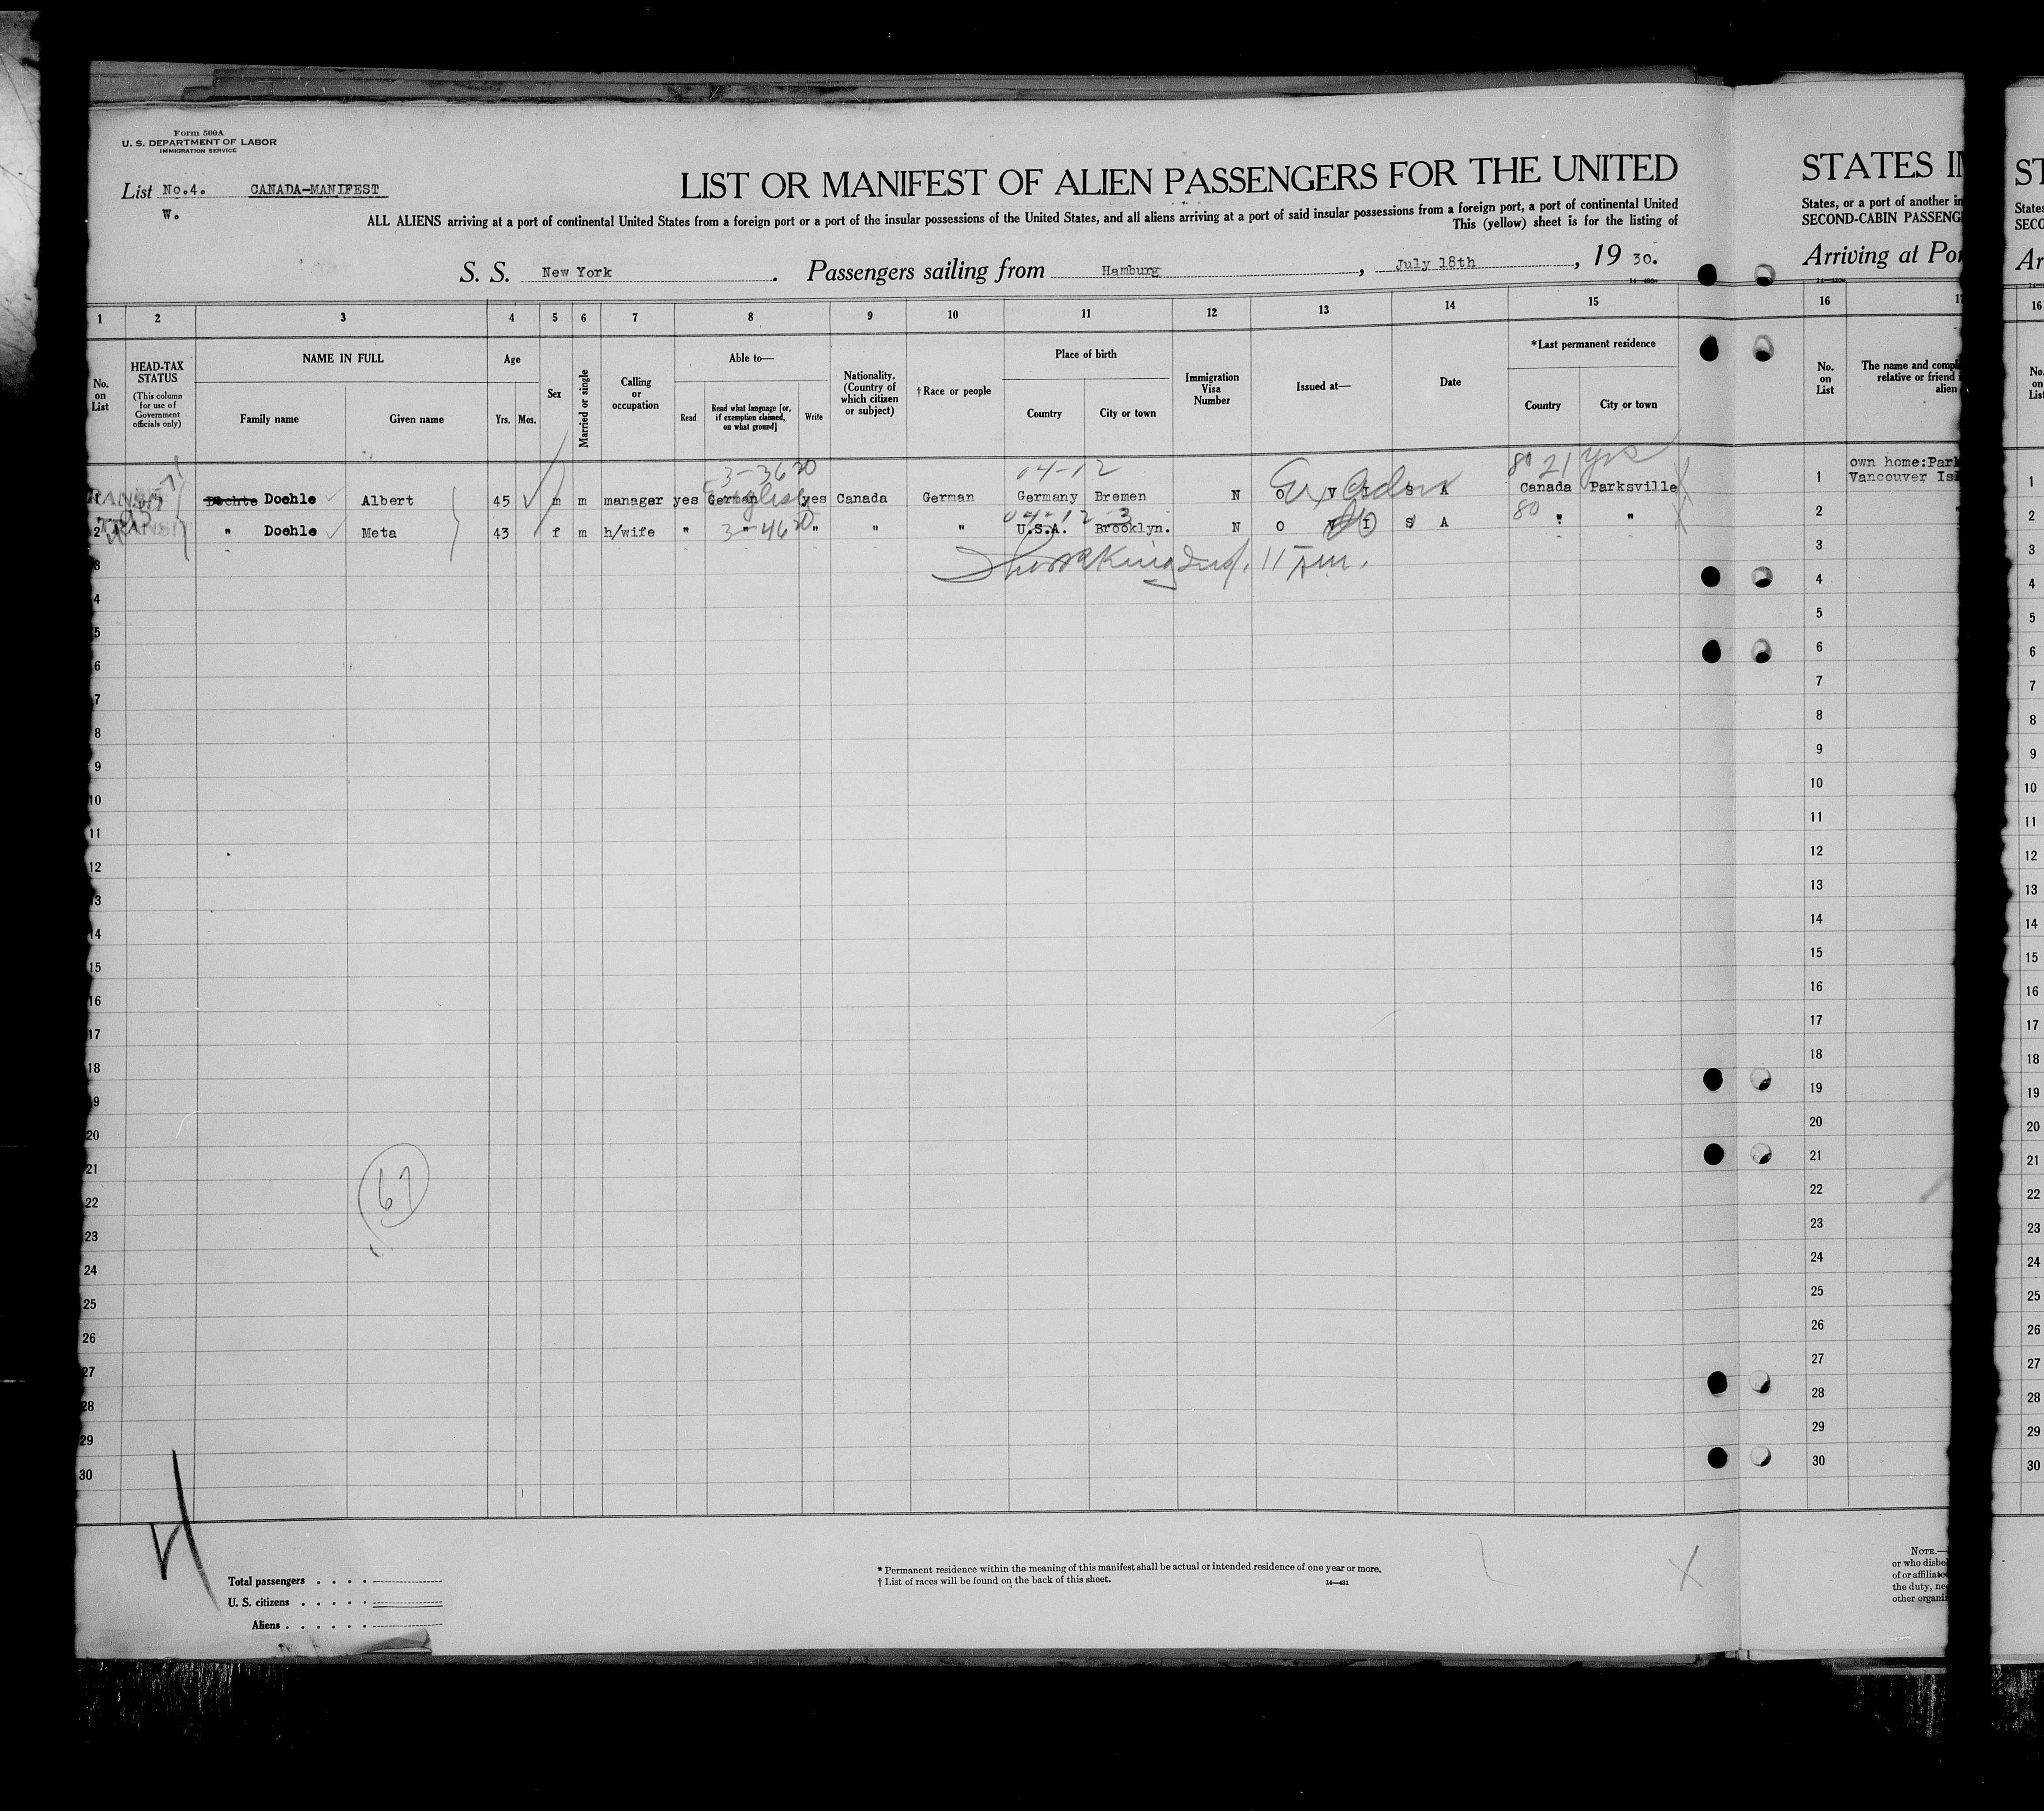 Form 500A
U. S. DEPARTMENT OF LABOR
IMMIGRATION SERVICE
List No.4. CANADA-MANIFEST
W.
LIST OR MANIFEST OF ALIEN PASSENGERS FOR THE UNITED
ALL ALIENS arriving at a port of continental United States from a foreign port or a port of the insular possessions of the United States, and all aliens arriving at a port of said insular possessions from a foreign port, a port of continental United
This (yellow) sheet is for the listing of
S. S. New York. Passengers sailing from Hamburg, July 18th, 1930.
1 2 3 4 5 6 7 8 9 10 11 12 13 14 15
No. on List
HEAD-TAX STATUS
(This column for use of Government officials only)
NAME IN FULL
Family name Given name
Age
Yrs. Mos.
Sex
Married or single
Calling or occupation
Able to—
Read
Read what language [or, if exemption claimed, on what ground]
Write
Nationality. (Country of which citizen or subject)
†Race or people
Place of birth
Country City or town
Immigration Visa Number
Issued at—
Date
*Last permanent residence
Country City or town
3-3620 04-12 80 21 yrs
TRANSIT Doehle Albert 45 m m manager yes German English yes Canada German Germany Bremen N O V I S A Canada Parksville
04-12 3 80
2 TRANSIT " Doehle Meta 43 f m h/wife " " 3-4620 " " " U.S.A. Brooklyn. N O V I S A " "
King Insp. 11 Am.
3
4
5
6
7
8
9
10
11
12
13
14
15
16
17
18
19
20
21
22
23
24
25
26
27
28
29
30
67
Total passengers
U. S. citizens
Aliens
* Permanent residence within the meaning of this manifest shall be actual or intended residence of one year or more.
† List of races will be found on the back of this sheet.
14—431
X
STATES IN
States, or a port of another in
SECOND-CABIN PASSENG
Arriving at Por
16 17
No. on List
The name and compl
relative or friend
alien
1 own home:Park
Vancouver Isl
2 "
3
4
5
6
7
8
9
10
11
12
13
14
15
16
17
18
19
20
21
22
23
24
25
26
27
28
29
30
NOTE.—
or who disbe
of or affiliate
the duty, nec
other organi
ST
States
SECO
Ar
16
No. on List
1
2
3
4
5
6
7
8
9
10
11
12
13
14
15
16
17
18
19
20
21
22
23
24
25
26
27
28
29
30